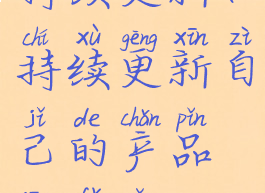 chí xù gēng xīn zì
持续更新自
jǐ de chǎn pǐn
己的产品